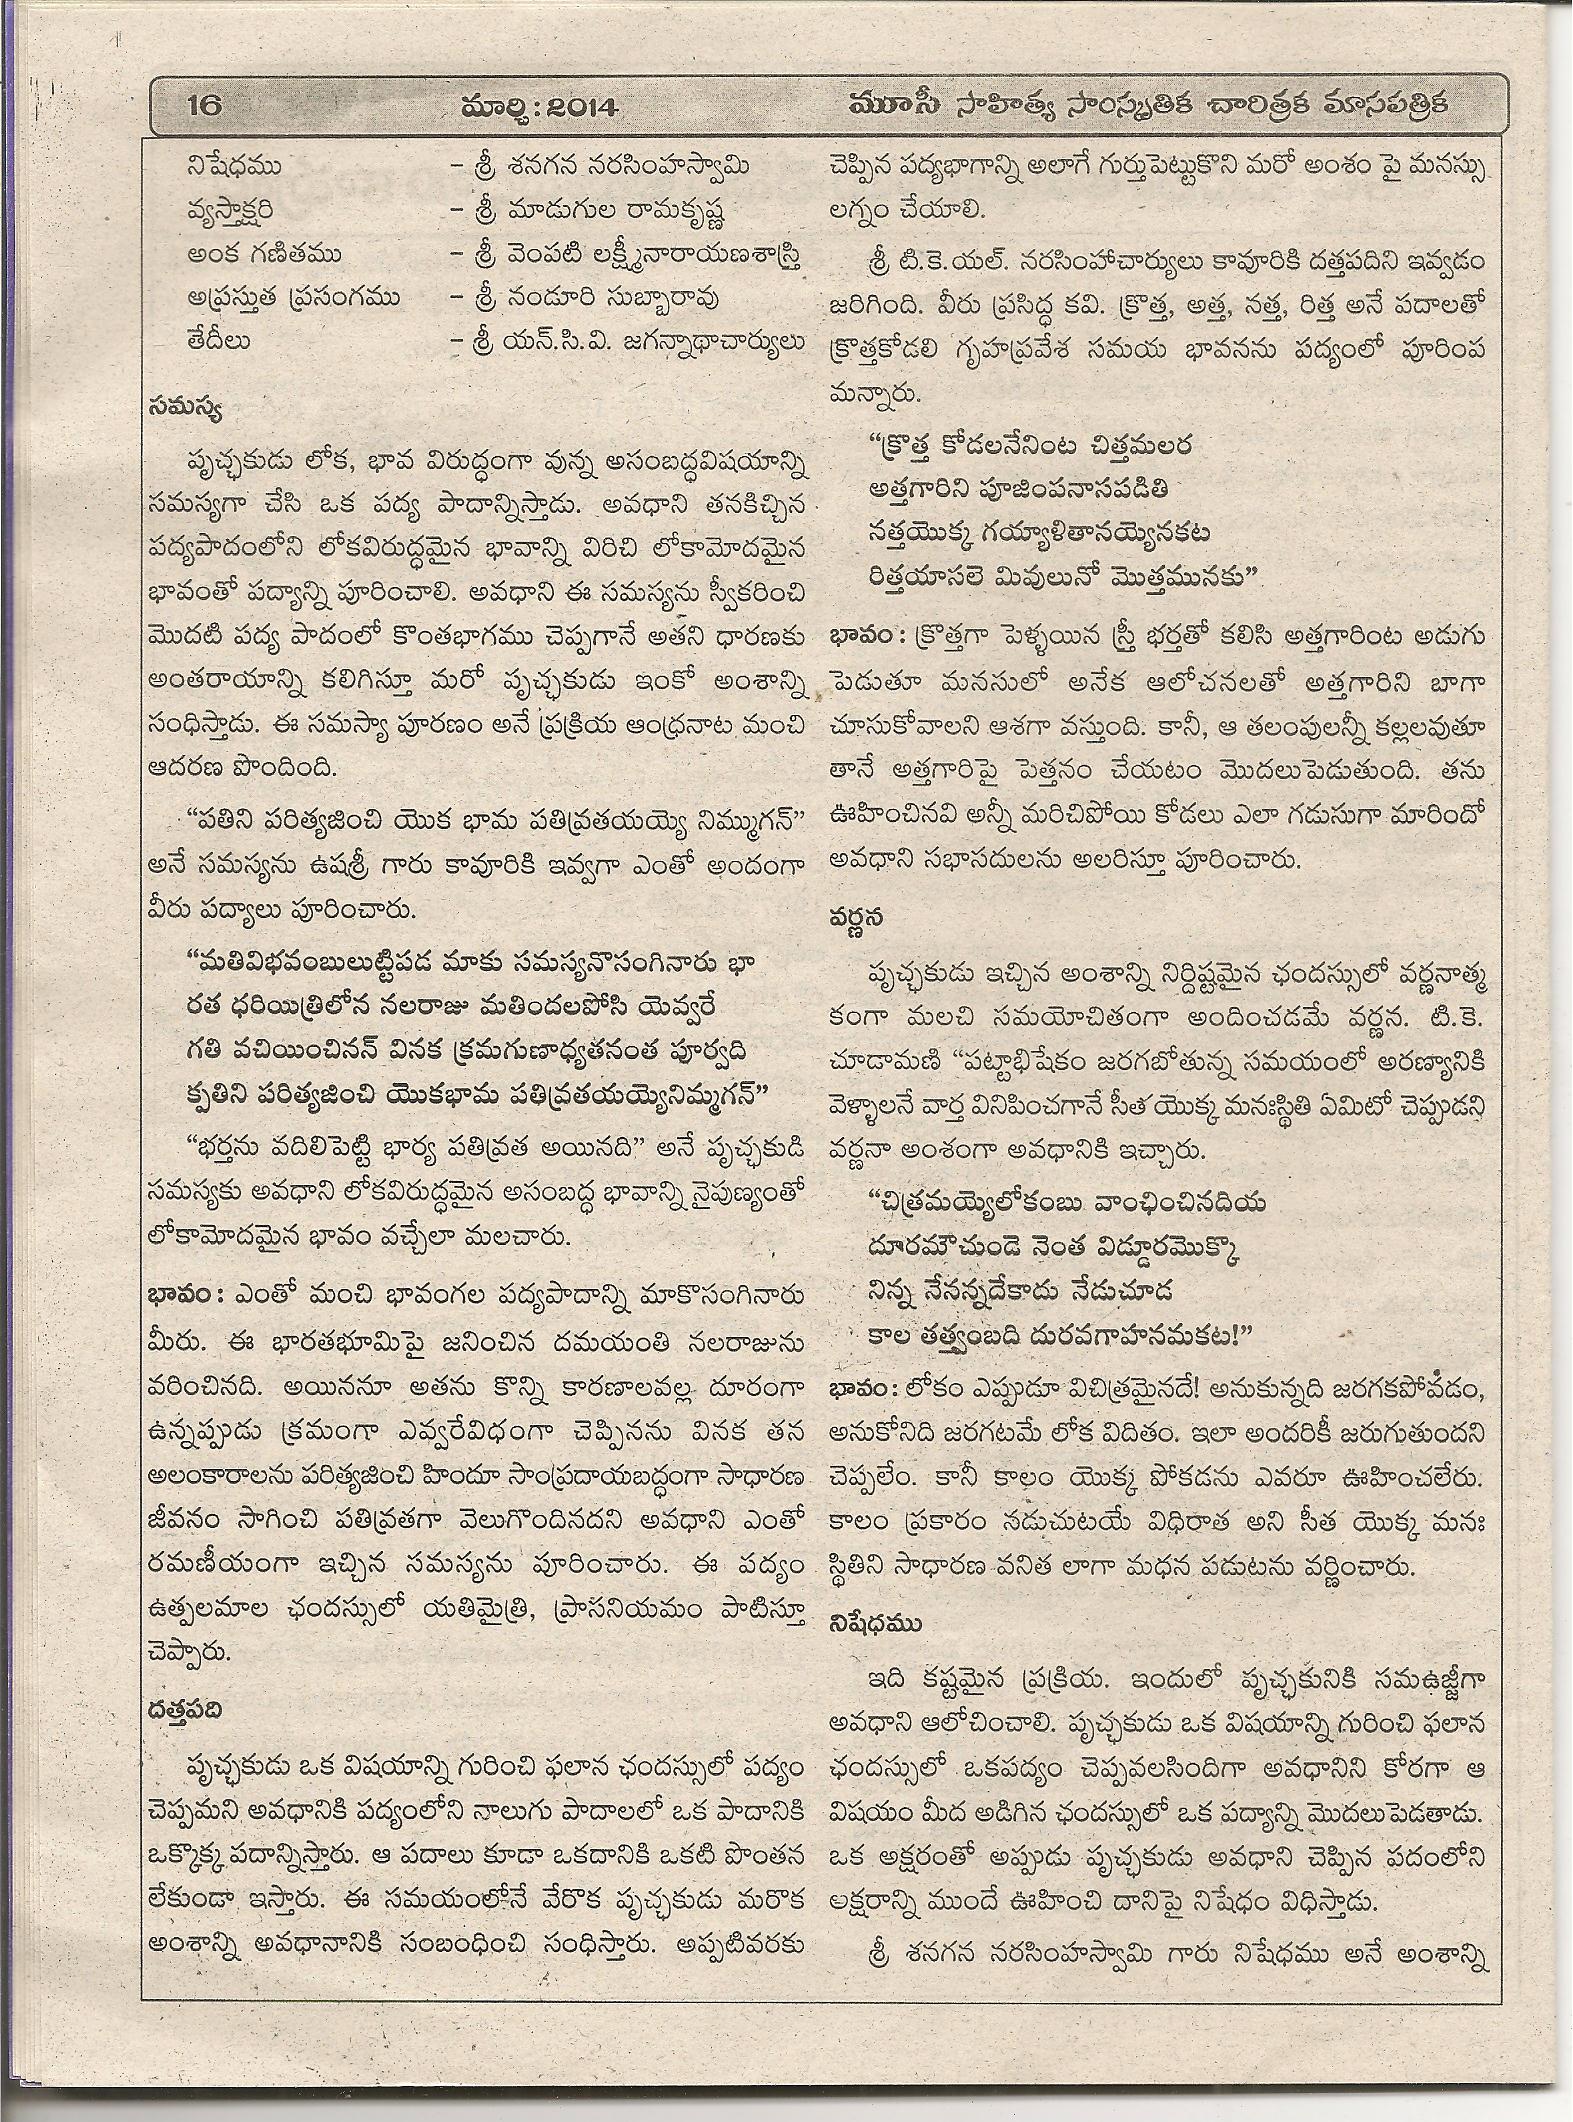 16 మార్చి: 2014 మూసీ సాహిత్య సాంస్కృతిక చారిత్రక మాసపత్రిక
నిషేధము – శ్రీ శనగన నరసింహస్వామి
వ్యస్తాక్షరి – శ్రీ మాడుగుల రామకృష్ణ
అంక గణితము – శ్రీ వెంపటి లక్ష్మీనారాయణశాస్త్రి
అప్రస్తుత ప్రసంగము – శ్రీ నండూరి సుబ్బారావు
తేదీలు – శ్రీ యన్.సి.వి. జగన్నాథాచార్యులు
సమస్య
పృచ్ఛకుడు లోక, భావ విరుద్ధంగా వున్న అసంబద్ధవిషయాన్ని
సమస్యగా చేసి ఒక పద్య పాదాన్నిస్తాడు. అవధాని తనకిచ్చిన
పద్యపాదంలోని లోకవిరుద్ధమైన భావాన్ని విరిచి లోకామోదమైన
భావంతో పద్యాన్ని పూరించాలి. అవధాని ఈ సమస్యను స్వీకరించి
మొదటి పద్య పాదంలో కొంతభాగము చెప్పగానే అతని ధారణకు
అంతరాయాన్ని కలిగిస్తూ మరో పృచ్ఛకుడు ఇంకో అంశాన్ని
సంధిస్తాడు. ఈ సమస్యా పూరణం అనే ప్రక్రియ ఆంధ్రనాట మంచి
ఆదరణ పొందింది.
“పతిని పరిత్యజించి యొక భామ పతివ్రతయయ్యె నిమ్ముగన్”
అనే సమస్యను ఉషశ్రీ గారు కావూరికి ఇవ్వగా ఎంతో అందంగా
వీరు పద్యాలు పూరించారు.
“మతివిభవంబులుట్టిపడ మాకు సమస్యనొసంగినారు భా
రత ధరియిత్రిలోన నలరాజు మతిందలపోసి యెవ్వరే
గతి వచియించినన్ వినక క్రమగుణాధ్యతనంత పూర్వది
క్పతిని పరిత్యజించి యొకభామ పతివ్రతయయ్యెనిమ్మగన్”
“భర్తను వదిలిపెట్టి భార్య పతివ్రత అయినది” అనే పృచ్ఛకుడి
సమస్యకు అవధాని లోకవిరుద్ధమైన అసంబద్ధ భావాన్ని నైపుణ్యంతో
లోకామోదమైన భావం వచ్చేలా మలచారు.
భావం : ఎంతో మంచి భావంగల పద్యపాదాన్ని మాకొసంగినారు
మీరు. ఈ భారతభూమిపై జనించిన దమయంతి నలరాజును
వరించినది. అయిననూ అతను కొన్ని కారణాలవల్ల దూరంగా
ఉన్నప్పుడు క్రమంగా ఎవ్వరేవిధంగా చెప్పినను వినక తన
అలంకారాలను పరిత్యజించి హిందూ సాంప్రదాయబద్ధంగా సాధారణ
జీవనం సాగించి పతివ్రతగా వెలుగొందినదని అవధాని ఎంతో
రమణీయంగా ఇచ్చిన సమస్యను పూరించారు. ఈ పద్యం
ఉత్పలమాల ఛందస్సులో యతిమైత్రి, ప్రాసనియమం పాటిస్తూ
చెప్పారు.
దత్తపది
పృచ్ఛకుడు ఒక విషయాన్ని గురించి ఫలాన ఛందస్సులో పద్యం
చెప్పమని అవధానికి పద్యంలోని నాలుగు పాదాలలో ఒక పాదానికి
ఒక్కొక్క పదాన్నిస్తారు. ఆ పదాలు కూడా ఒకదానికి ఒకటి పొంతన
లేకుండా ఇస్తారు. ఈ సమయంలోనే వేరొక పృచ్ఛకుడు మరొక
అంశాన్ని అవధానానికి సంబంధించి సంధిస్తారు. అప్పటివరకు
చెప్పిన పద్యభాగాన్ని అలాగే గుర్తుపెట్టుకొని మరో అంశం పై మనస్సు
లగ్నం చేయాలి.
శ్రీ టి.కె.యల్. నరసింహాచార్యులు కావూరికి దత్తపదిని ఇవ్వడం
జరిగింది. వీరు ప్రసిద్ధ కవి. క్రొత్త, అత్త, నత్త, రిత్త అనే పదాలతో
క్రొత్తకోడలి గృహప్రవేశ సమయ భావనను పద్యంలో పూరింప
మన్నారు.
“క్రొత్త కోడలనేనింట చిత్తమలర
అత్తగారిని పూజింపనాసపడితి
నత్తయొక్క గయ్యాళితానయ్యెనకట
రిత్తయాసలె మివులునో మొత్తమునకు”
భావం : క్రొత్తగా పెళ్ళయిన స్త్రీ భర్తతో కలిసి అత్తగారింట అడుగు
పెడుతూ మనసులో అనేక ఆలోచనలతో అత్తగారిని బాగా
చూసుకోవాలని ఆశగా వస్తుంది. కానీ, ఆ తలంపులన్నీ కల్లలవుతూ
తానే అత్తగారిపై పెత్తనం చేయటం మొదలుపెడుతుంది. తను
ఊహించినవి అన్నీ మరిచిపోయి కోడలు ఎలా గడుసుగా మారిందో
అవధాని సభాసదులను అలరిస్తూ పూరించారు.
వర్ణన
పృచ్ఛకుడు ఇచ్చిన అంశాన్ని నిర్దిష్టమైన ఛందస్సులో వర్ణనాత్మ
కంగా మలచి సమయోచితంగా అందించడమే వర్ణన. టి.కె.
చూడామణి “పట్టాభిషేకం జరగబోతున్న సమయంలో అరణ్యానికి
వెళ్ళాలనే వార్త వినిపించగానే సీత యొక్క మనఃస్థితి ఏమిటో చెప్పుడని
వర్ణనా అంశంగా అవధానికి ఇచ్చారు.
“చిత్రమయ్యెలోకంబు వాంఛించినదియ
దూరమౌచుండె నెంత విడ్డూరమొక్కొ
నిన్న నేనన్నదేకాదు నేడుచూడ
కాల తత్త్వంబది దురవగాహనమకట!”
భావం : లోకం ఎప్పుడూ విచిత్రమైనదే! అనుకున్నది జరగకపోవడం,
అనుకోనిది జరగటమే లోక విదితం. ఇలా అందరికీ జరుగుతుందని
చెప్పలేం. కానీ కాలం యొక్క పోకడను ఎవరూ ఊహించలేరు.
కాలం ప్రకారం నడుచుటయే విధిరాత అని సీత యొక్క మనః
స్థితిని సాధారణ వనిత లాగా మధన పడుటను వర్ణించారు.
నిషేధము
ఇది కష్టమైన ప్రక్రియ. ఇందులో పృచ్ఛకునికి సమఉజ్జీగా
అవధాని ఆలోచించాలి. పృచ్ఛకుడు ఒక విషయాన్ని గురించి ఫలాన
ఛందస్సులో ఒకపద్యం చెప్పవలసిందిగా అవధానిని కోరగా ఆ
విషయం మీద అడిగిన ఛందస్సులో ఒక పద్యాన్ని మొదలుపెడతాడు.
ఒక అక్షరంతో అప్పుడు పృచ్ఛకుడు అవధాని చెప్పిన పదంలోని
అక్షరాన్ని ముందే ఊహించి దానిపై నిషేధం విధిస్తాడు.
శ్రీ శనగన నరసింహస్వామి గారు నిషేధము అనే అంశాన్ని